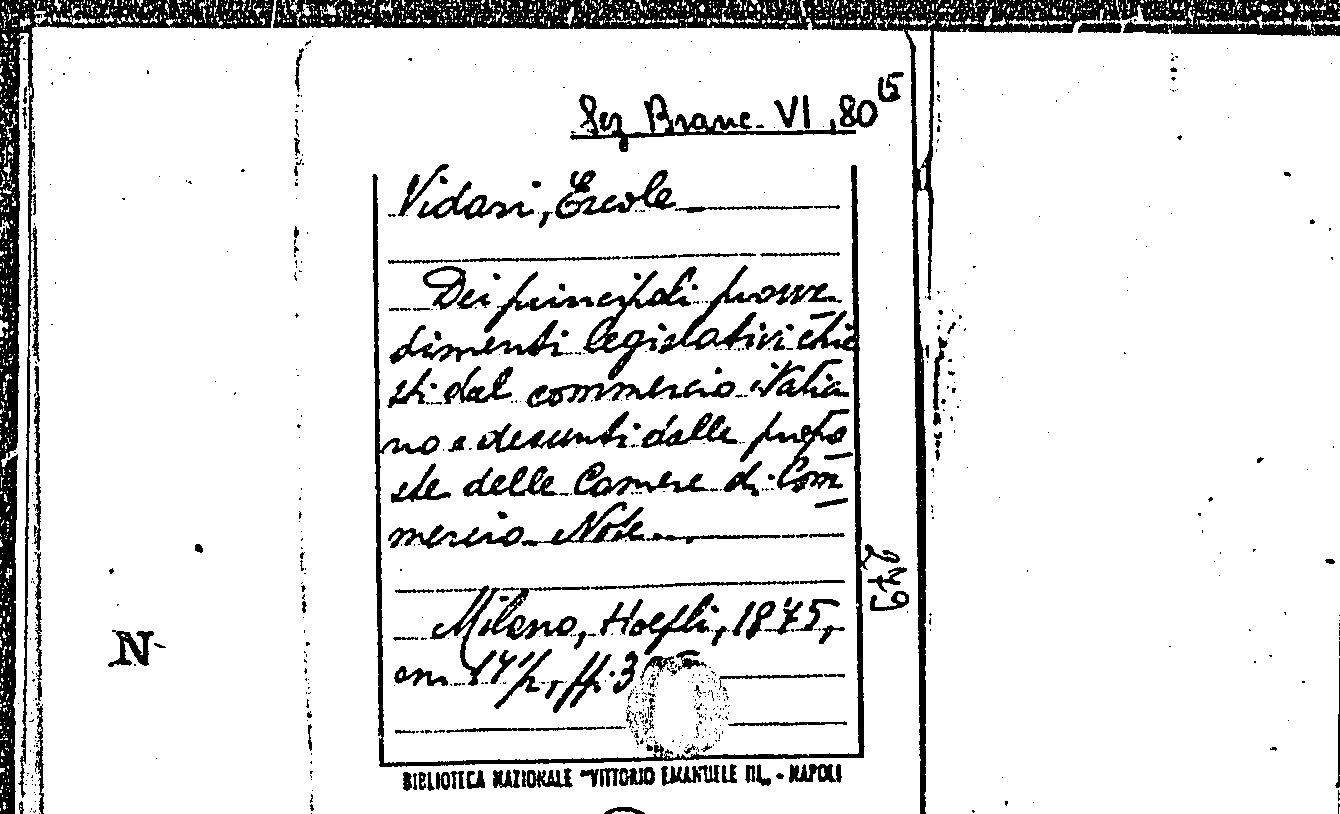 Sez Branc. VI, 80¹⁵
Vidari, Ercole
Dei principali provve
dimenti legislativi chie
sti dal commercio italia
no e desunti dalle propo
ste delle Camere di Com
mercio. Note...
Milano, Hoepli, 1875,
cm. 17½, pp. 3
279
N
BIBLIOTECA NAZIONALE "VITTORIO EMANUELE III„ - NAPOLI